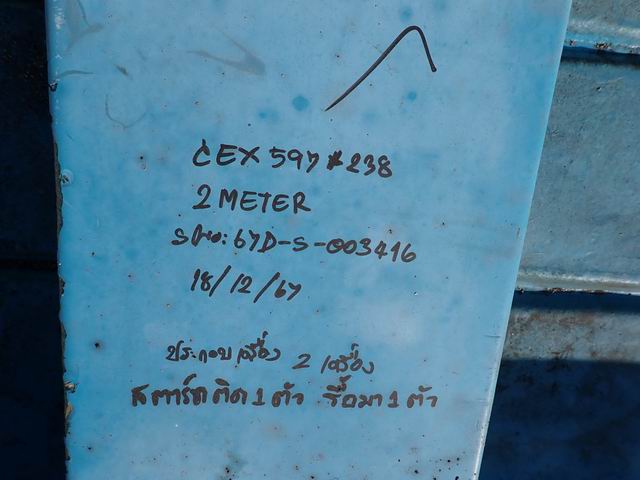 CEX 597 # 238
2 METER
67D-S-003416
18/12/67
ประกอบเครื่อง 2 เครื่อง
สตาร์ทติด 1 ตัว รื้อมา 1 ตัว